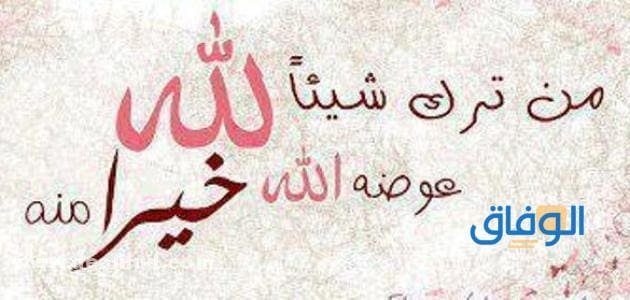 من ترك شيئاً لله
عوضه الله خيرا منه
الوفاق